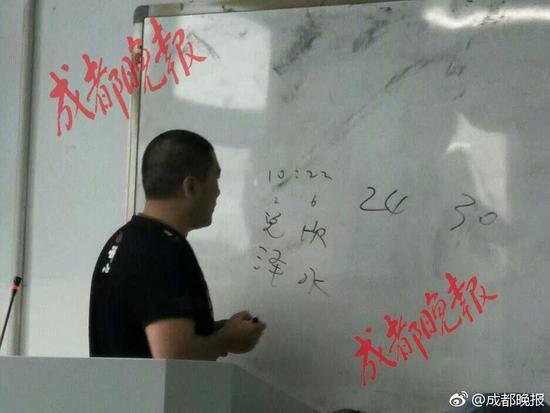 成都晚报
10:22
2 6
兑 坎
泽 水
24
30
成都晚报
@成都晚报